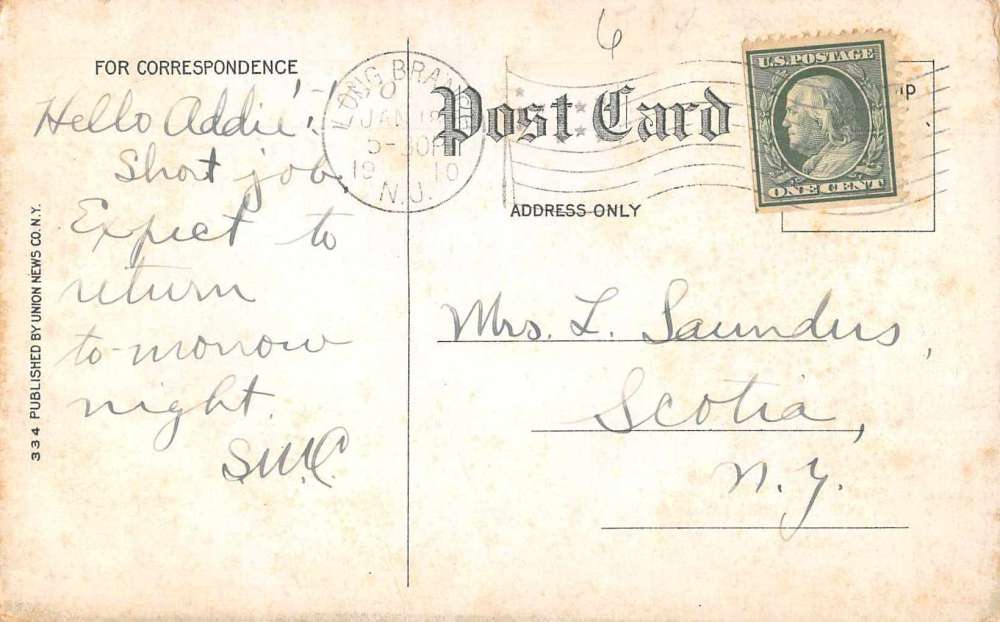 6
FOR CORRESPONDENCE
Hello Addie!
Short job.
Expect to
return
to-morrow
night.
S.W.C.
LONG BRANCH
JAN 18
5-30P
1910
N.J.
Post Card
ADDRESS ONLY
U.S. POSTAGE
ONE CENT
Mrs. L. Saunders,
Scotia,
N.Y.
334 PUBLISHED BY UNION NEWS CO. N.Y.